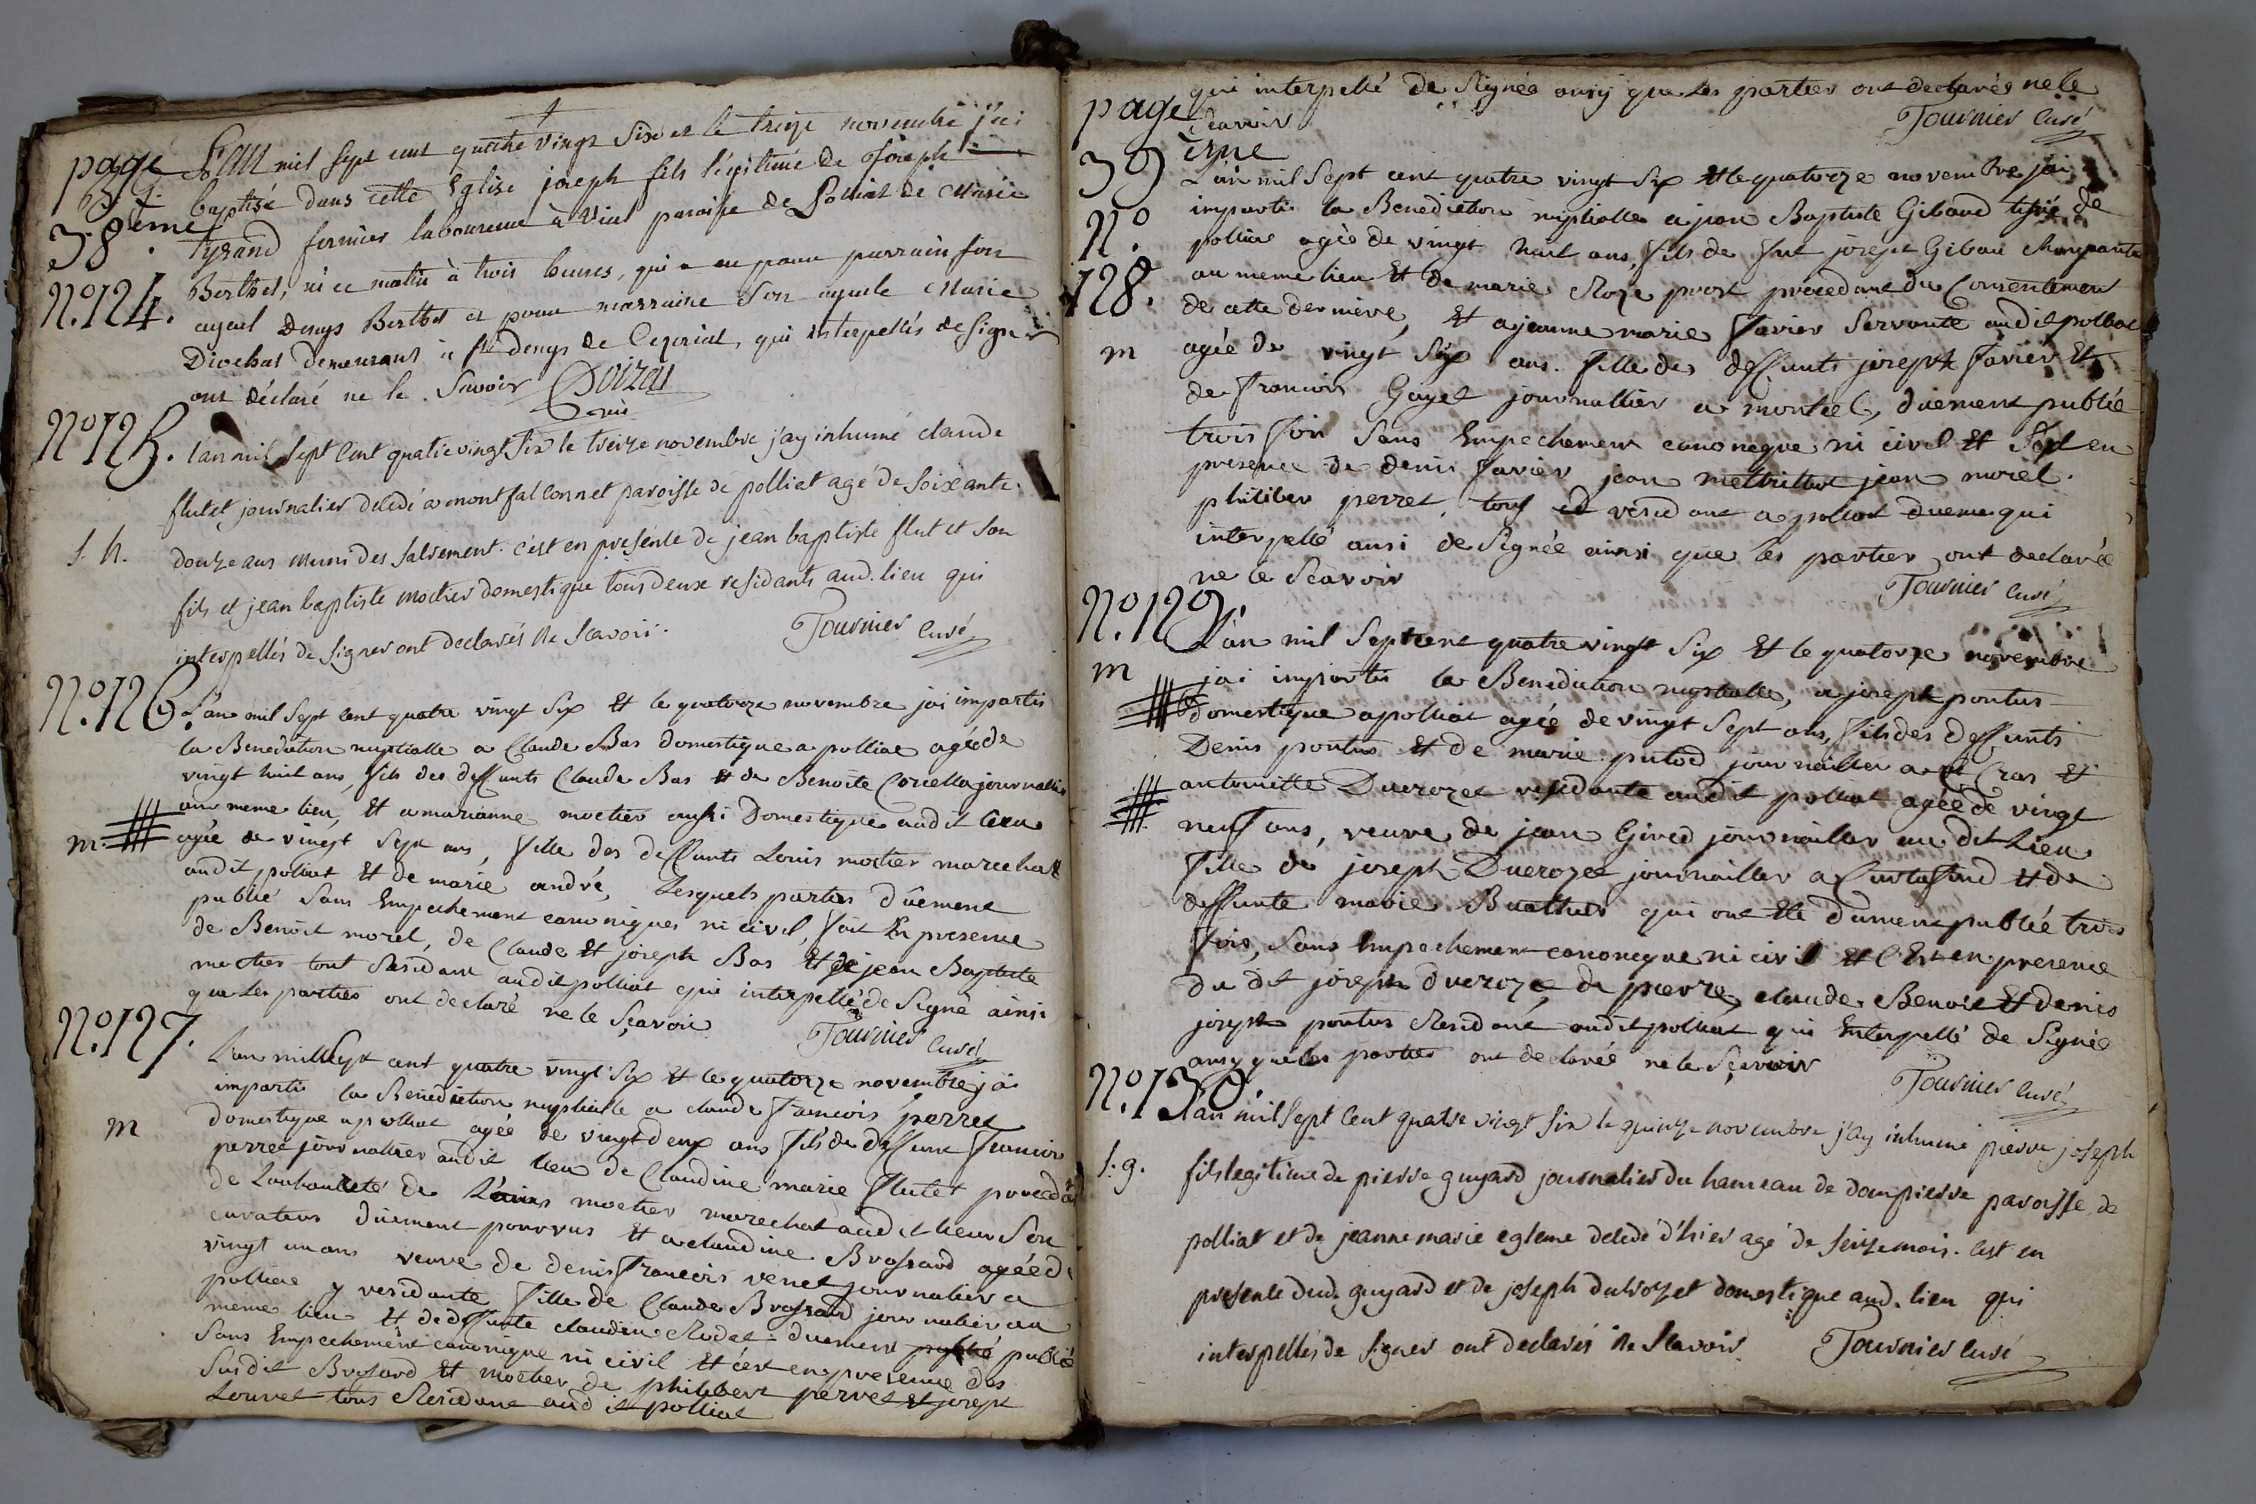 page
38.ème
N.o 124.
b. g.
L'an mil sept cent quatre vingt six et le treize novembre j'ai
baptisé dans cette Eglise joseph fils légitime de Joseph
Tysand fermier laboureur à Vial paroisse de Polliat de Marie
Berthet, né ce matin à trois heures, qui a eu pour parrain son
ayeul Denys Berthet et pour marraine son ayeule Marie
Diochat demeurans à st denys de Ceyziriat, qui interpellés de signer
ont déclaré ne le Savoir
N.o 125.
s. h.
l'an mil sept cent quatrevingt six le treize novembre j'ay inhumé claude
flutet journalier décédé a montfalconnet paroisse de polliat agé de soixante
douze ans muni des sacrement. c'est en présence de jean baptiste flutet son
fils et jean baptiste moctier domestique tous deux residants aud. lieu qui
interpellés de signer ont declarés ne scavoir.
Tournier curé
N.o 126.
m.
L'an mil sept cent quatre vingt six et le quatorze novembre jai impartis
la Benediction nuptialle a Claude Bas domestique a polliat agée de
vingt huit ans, fils des deffunts Claude Bas et de Benoite Coriella journallier
au meme lieu, et a marianne moctier aussi Domestique audit lieu
agée de vingt sept ans, fille des deffunts Louis moctier marechal
audit polliat et de marie andré, Lesquels parties dûement
publié sans Empechement canoniques ni civil, fait En presence
de Benoit morel, de Claude et joseph Bas et de jean Baptiste
moctier tout Residant audit polliat qui interpellé de signé ainsi
que les parties ont declaré ne le sçavoir
Tournier curé
N.o 127.
m
L'an mil sept cent quatre vingt six et le quatorze novembre jai
impartis la Benediction nuptialle a claude francois perret
domestique a polliat agée de vingt deux ans fils de deffunt francois
perret journallier audit lieu de Claudine marie flutet procedant
de Lauthorité de Louis moctier marechal audit lieu son
curateur dûement pourvus et a claudine Brossard agéé de
vingt un ans veuve de denis francois venet journalier a
polliat y residante fille de Claude Brossard journalier au
meme lieu et de deffunte claudine Rodet duement publié
sans Empechement canonique ni civil et c'est en presence des
susdit Brossard et moctier de philibert perret et joseph
Louvet tous Residant audit polliat
page
39 ême
qui interpellé de signée ausy que les parties ont declarés ne le
scavoir
Tournier curé
N.o 128.
m
L'an mil sept cent quatre vingt six et le quatorze novembre jai
impartis la Benediction nuptialle a jean Baptiste Giband de
polliat agée de vingt huit ans, fils de fut joseph Gibau charpantier
au meme lieu et de marie Roze prost procedant du Consentement
de cette derniere, et a jeanne marie favier servante audit polliat
agée de vingt six ans. fille des deffunts joseph favier et
de francois Gayet journallier a montcel, düement publié
trois fois sans Empechement canonique ni civil et c'est en
presence de denis favier jean jean morel.
philiber perret, tous residant a polliat dueme qui
interpellé ausi de signée ainsi que les parties ont declarée
ne le scavoir
Tournier curé
N.o 129.
m
L'an mil sept cent quatre vingt six et le quatorze novembre
jai impartis la Benediction nuptialle, a joseph pontus
domestique a polliat agée de vingt sept ans, fils des deffunts
Denis pontus et de marie putod journailler a Cras et
antoinette Ducrozet residante audit polliat agée de vingt
neuf ans, veuve de jean Gired journailler au dit Lieu
fille de joseph Ducrozet journailler a Curtafond et de
deffunte marie Buathier qui ont ete dument publiée trois
fois, sans Empechement canonique ni civil et c'Est en presence
du dit joseph Ducrozet, de pierre, claude. Benoit et denis
joseph pontus Residant audit polliat qui Enterpellé de signée
ausy que les parties ont declarée ne le sçavoir
Tournier curé
N.o 130.
s. g.
l'an mil sept cent quatre vingt six le quinze novembre j'ay inhumé pierre joseph
fils legitime de pierre guyard journalier du hameau de dompierre paroisse de
polliat et de jeanne marie egleme décédé d'hier agé de seize mois. c'est en
presence dud. guyard et de joseph ducrozet domestique aud. lieu qui
interpellés de signer ont declarés ne scavoir.
Tournier curé